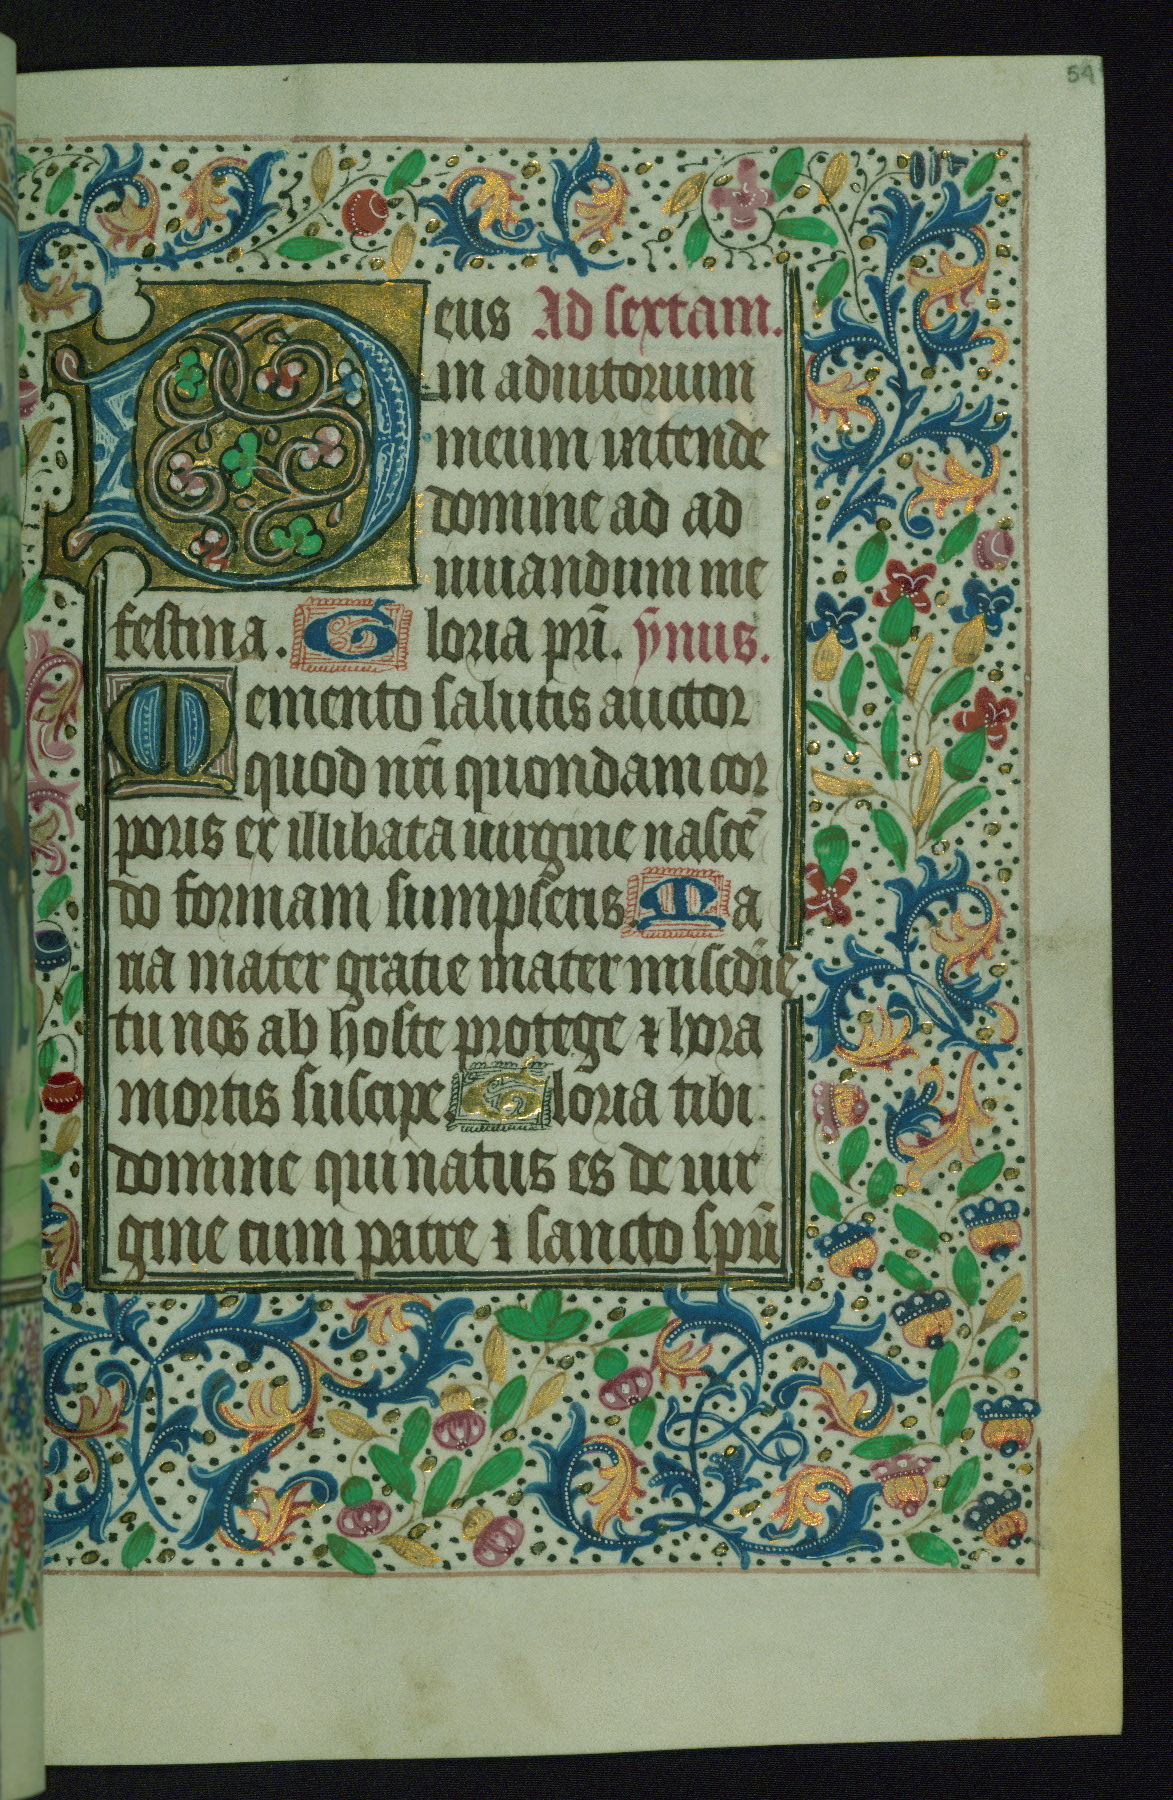 54
Deus Ad sextam.
in adiutorium
meum intende
domine ad ad
iuuandum me
festina. Gloria pr̄i. ȳnus.
Memento salutis auctor
quod nr̄i quondam cor
poris ex illibata uirgine nascē
do formam sumpseris Ma
ria mater gratie mater misc̄die
tu nos ab hoste protege ⁊ hora
mortis suscipe Gloria tibi
domine qui natus es de uir
gine cum patre ⁊ sancto spū